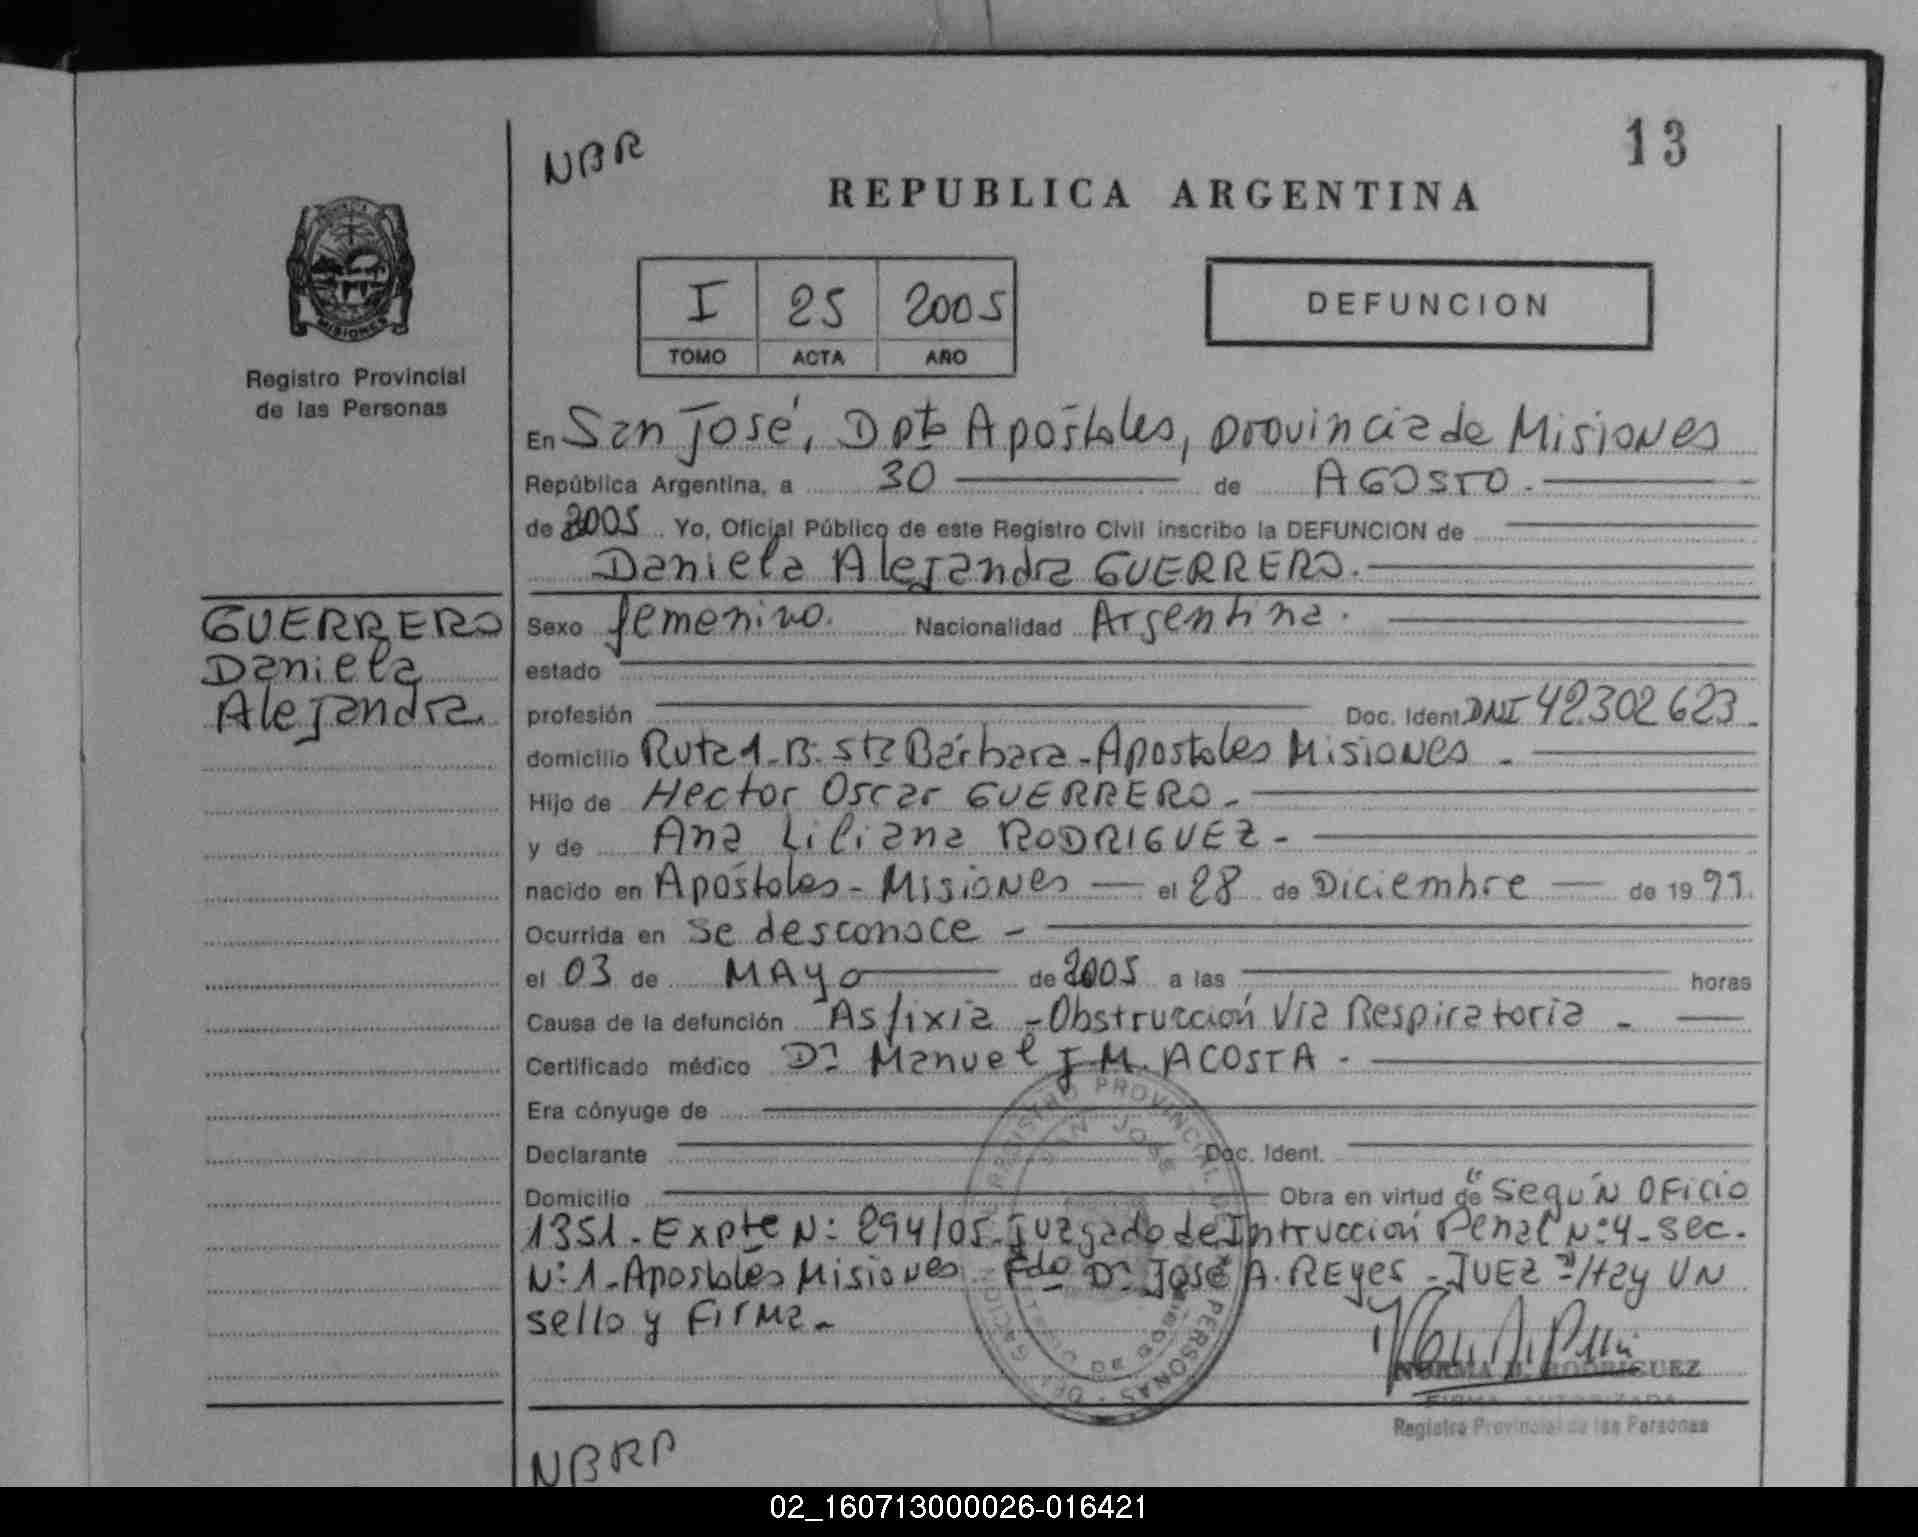 NBR
13
REPUBLICA ARGENTINA
MISIONES
Registro Provincial
de las Personas
I 25 2005
TOMO ACTA AÑO
DEFUNCION
En San José, Dpto Apóstoles, provincia de Misiones
República Argentina, a 30 de AGOSTO.
de 2005 Yo, Oficial Público de este Registro Civil inscribo la DEFUNCION de
Daniela Alejandra GUERRERO.
GUERRERO
Daniela
Alejandra
Sexo femenino. Nacionalidad Argentina.
estado
profesión Doc. Ident. DNI 42.302623
domicilio Ruta 1-B. Sta Bárbara-Apostoles Misiones -
Hijo de Hector Oscar GUERRERO -
y de Ana Liliana RODRIGUEZ -
nacido en Apóstoles - Misiones el 28 de Diciembre de 1999.
Ocurrida en se desconoce -
el 03 de MAYO de 2005 a las horas
Causa de la defunción Asfixia - Obstrucción Via Respiratoria -
Certificado médico Dr. Manuel J.M. ACOSTA -
Era cónyuge de
Declarante Doc. Ident.
Domicilio Obra en virtud de "Según OFicio
1351. Expte N: 294/05. Juzgado de Intrucción Penal Nº4- sec.
Nº1-Apostoles Misiones Fdo Dr. José A. Reyes - JUEZ" Hay UN
sello y Firma -
REGISTRO PROVINCIAL DE PERSONAS
SAN JOSE
NORMA B. RODRIGUEZ
FIRMA AUTORIZADA
Registro Provincial de las Personas
NBRP
02_160713000026-016421